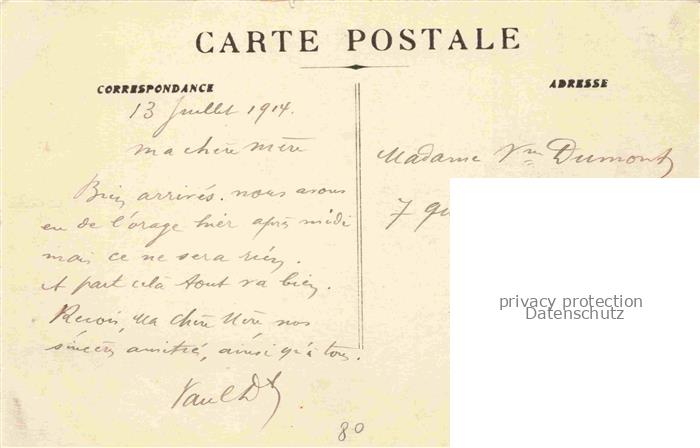 CARTE POSTALE
CORRESPONDANCE
ADRESSE
13 Juillet 1914.
Ma chère Mère
Bien arrivés. nous avons
eu de l'orage hier après midi
mais ce ne sera rien.
A part celà tout va bien.
Reçois, Ma chère Mère nos
sincères amitiés, ainsi qu'à tous.
Paul Dt
Madame Vve Dumont
7 qu
privacy protection
Datenschutz
80